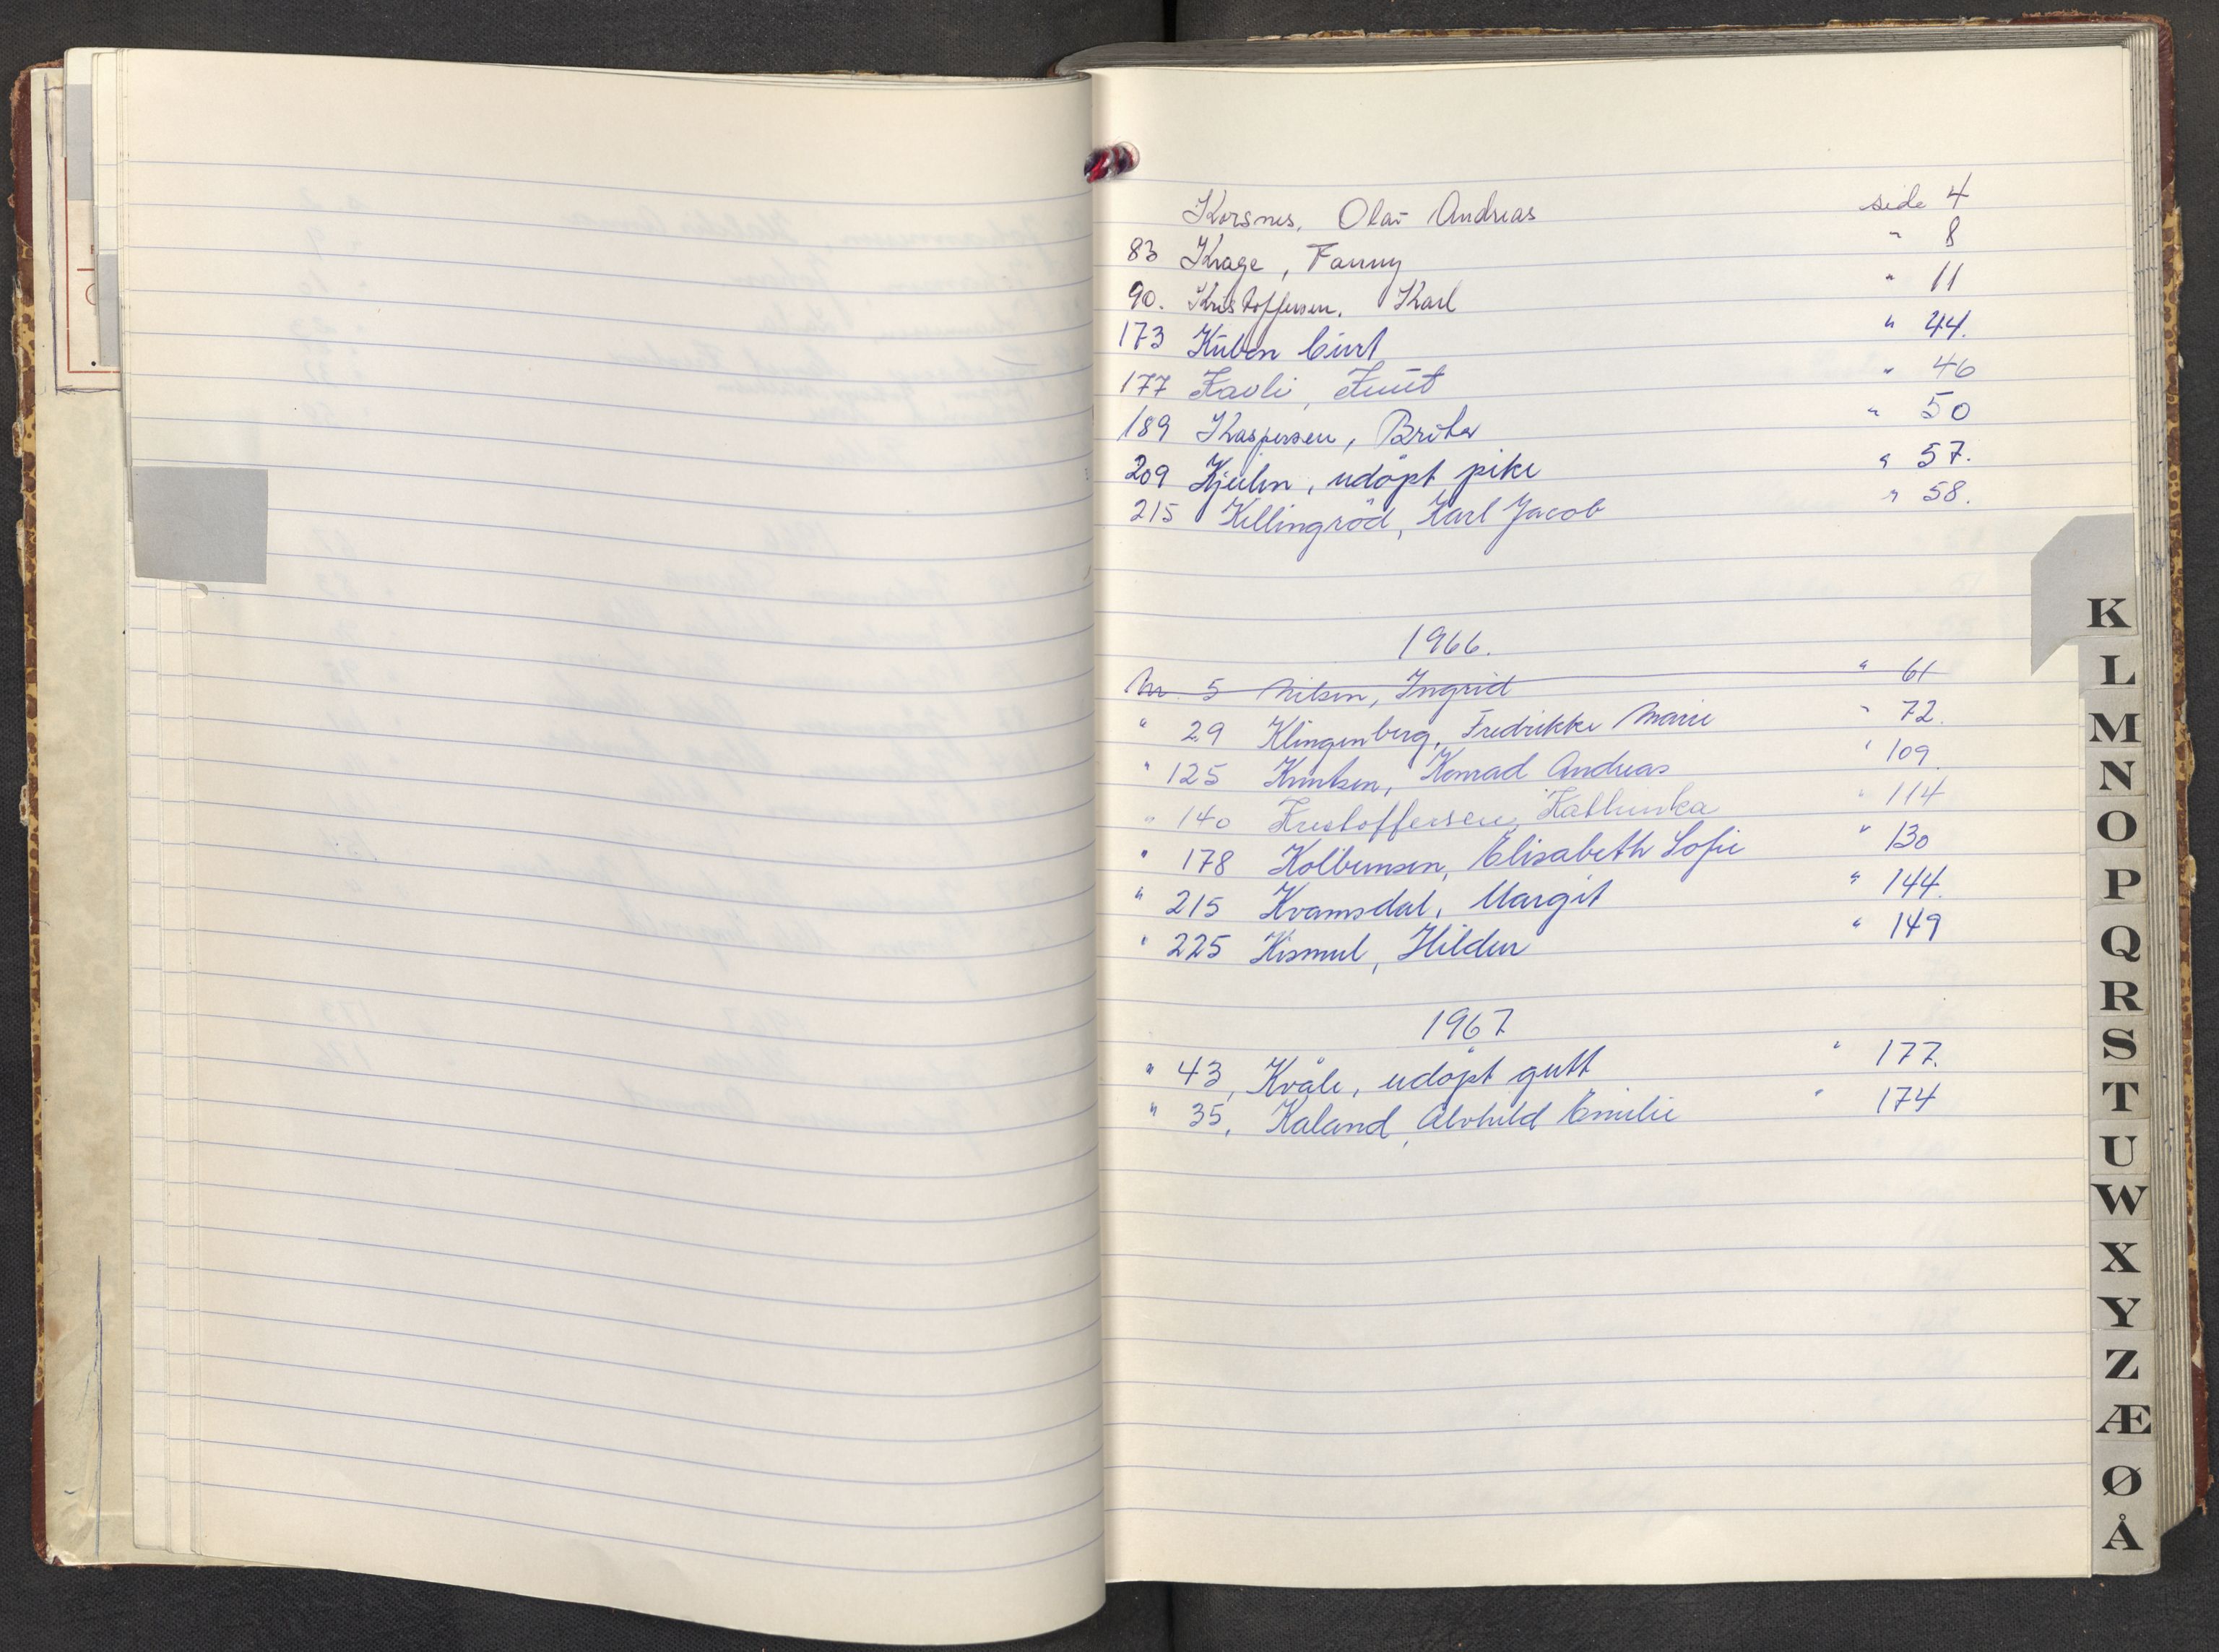 Korsnes, Olav Andreas side 4
83 Krage, Fanny " 8
90. Kristoffersen, Karl " 11
173 Kuben Curt " 44.
177 Kavli, Knut " 46
189 Kaspersen, Brite " 50
209 Kjeilen, udöpt pike " 57.
215 Killingröd, Karl Jacob " 58.
1966.
Nr. 5 Nilsen, Ingrid " 61
" 29 Klingenberg, Fredrikke Marie " 72.
" 125 Knutsen, Konrad Andreas " 109.
" 140 Kristoffersen, Kathinka " 114
" 178 Kolbeinsen, Elisabeth Sofie " 130
" 215 Kvamsdal, Margit " 144.
" 225 Kismul, Hildur " 149
1967
" 43, Kvåle, udöpt gutt " 177.
" 35, Kaland, Alvhild Emilie " 174
K
L
M
N
O
P
Q
R
S
T
U
W
X
Y
Z
Æ
Ø
Å